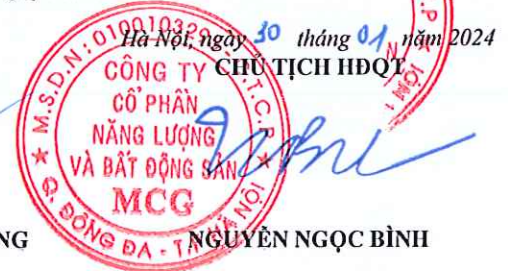 Hà Nội, ngày 30 tháng 01 năm 2024
CHỦ TỊCH HĐQT
M.S.D.N: 010010329
T.C.P
CÔNG TY
CỔ PHẦN
NĂNG LƯỢNG
VÀ BẤT ĐỘNG SẢN
MCG
Q. ĐỐNG ĐA - T.P HÀ NỘI
NG
NGUYỄN NGỌC BÌNH